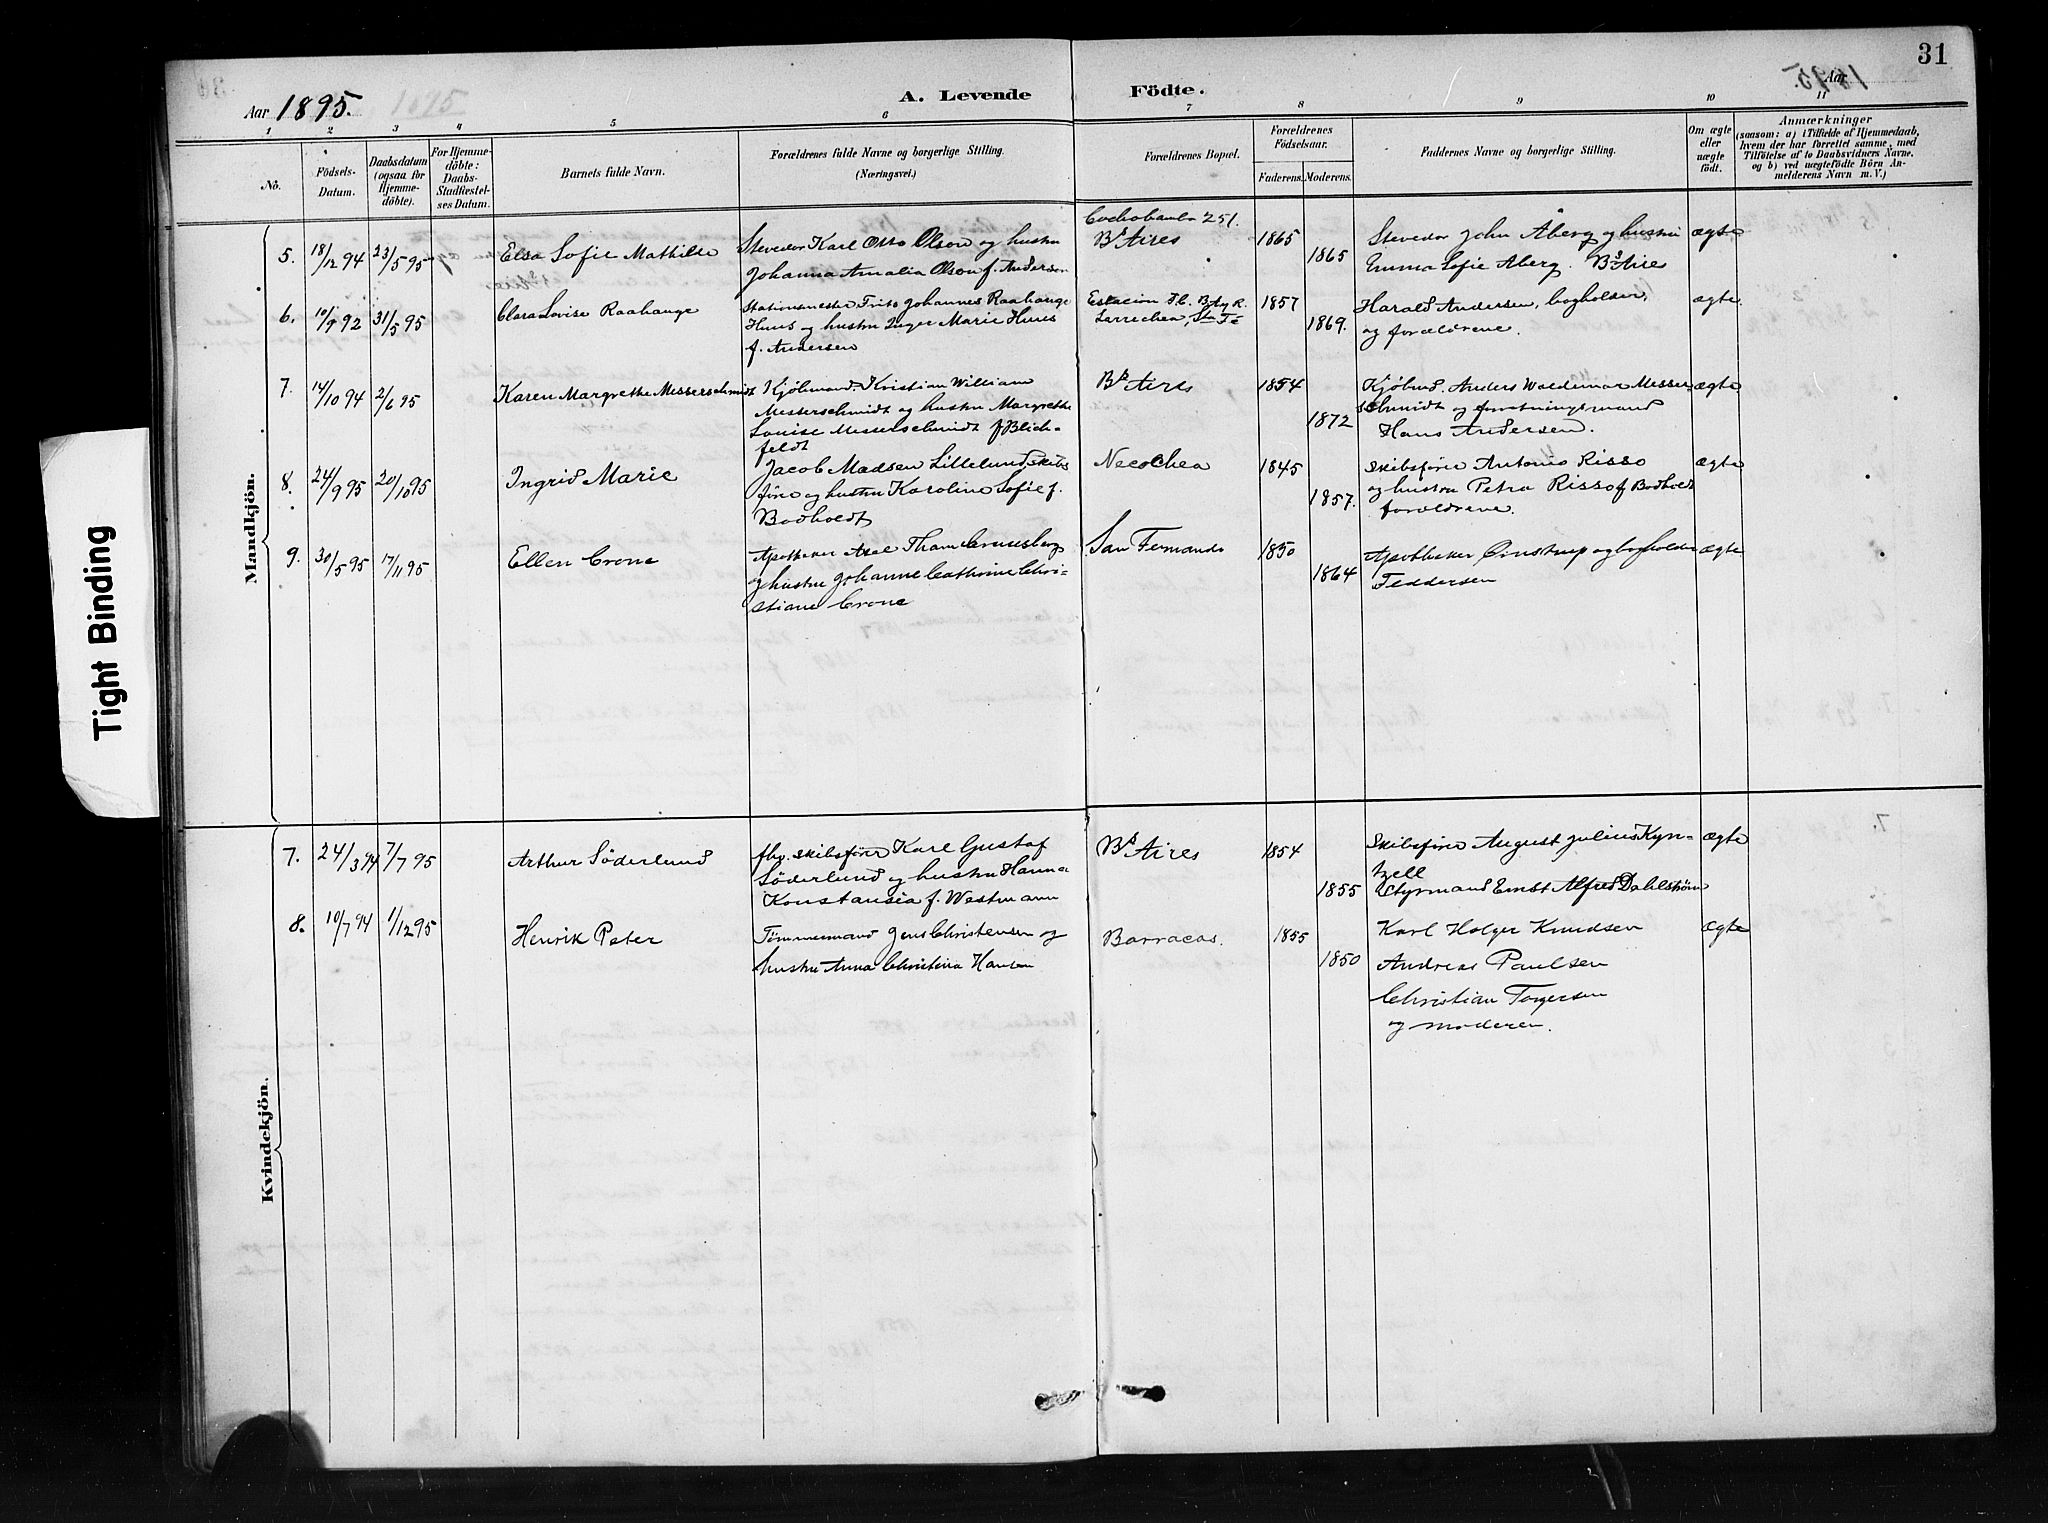 31
Aar 1895.
A. Levende Födte.
Aar 1895.
1 2 3 4 5 6 7 8 9 10 11
No.
Födsels-Datum.
Daabsdatum (ogsaa for Hjemme-döbte).
For Hjemme-döbte: Daabs-Stadfæstel-ses Datum.
Barnets fulde Navn.
Forældrenes fulde Navne og borgerlige Stilling.
(Næringsvei.)
Forældrenes Bopæl.
Forældrenes Födselsaar.
Faderens. Moderens.
Faddernes Navne og borgerlige Stilling.
Om ægte eller uægte födt.
Anmærkninger
(saasom: a) i Tilfælde af Hjemmedaab,
hvem der har forrettet samme, med
Tilföielse af to Daabsvidners Navne,
og b) ved uægtefödte Börn An-
melderens Navn m. V.)
Mandkjön.
5. 18/12 94 23/5 95 Elsa Sofie Mathilde
Stevedor Karl Otto Olson og hustru
Johanna Amalia Olson f. Anderson
Cochobamba 251.
Bs Aires
1865
1865
Stevedor John Åberg og hustru
Emma Sofie Åberg. Bs Aires
ægte
6. 10/9 92 31/5 95 Clara Lovise Raahauge
Stationsmester Frits Johannes Raahauge
Huus og hustru Inger Marie Huus
f. Andersen
Estacion
Larrechea, Sta Fé
1857
1869.
Harald Andersen, bogholder,
og forældrene.
ægte
7. 14/10 94 2/6 95 Karen Margrethe Messerschmidt
Kjöbmand Kristian William
Messerschmidt og hustru Margrethe
Louise Messerschmidt f Blich-
feldt
Bs Aires
1854
1872
Kjöbmd. Anders Waldemar Messer-
schmidt og forretningsmand
Hans Andersen.
ægte
8. 24/9 95 20/10 95 Ingrid Marie
Jacob Madsen Lillelund, skibs
förer og hustru Karoline Sofie f.
Bodholdt
Necochea
1845
1857.
Skibsförer Antonio Risso
og hustru Petra Risso f Bodholdt
forældrene.
ægte
9. 30/5 95 17/11 95 Ellen Crone
Apotheker Axel Tham
og hustru Johanne Cathrine Chri-
stiane Crone
San Fernando
1850
1864
Apotheker Ørnstrup og bogholder
Feddersen
ægte
Kvindekjön.
7. 24/3 94 7/7 95 Arthur Söderlund
fhv. skibsförer Karl Gustaf
Söderlund og hustru Hanna
Konstansia f. Westmann
Bs Aires
1854
1855
Skibsförer August Julius Kyn-
tzell
Styrmand Ernst Alfred Dahlström
ægte
8. 10/7 94 1/12 95 Henrik Peter
Tømmermand Jens Christensen og
hustru Anna Christina Hansen
Barracas.
1855
1850
Karl Holger Knudsen
Andreas Paulsen
Christian Torgersen
og moderen.
ægte
Tight Binding